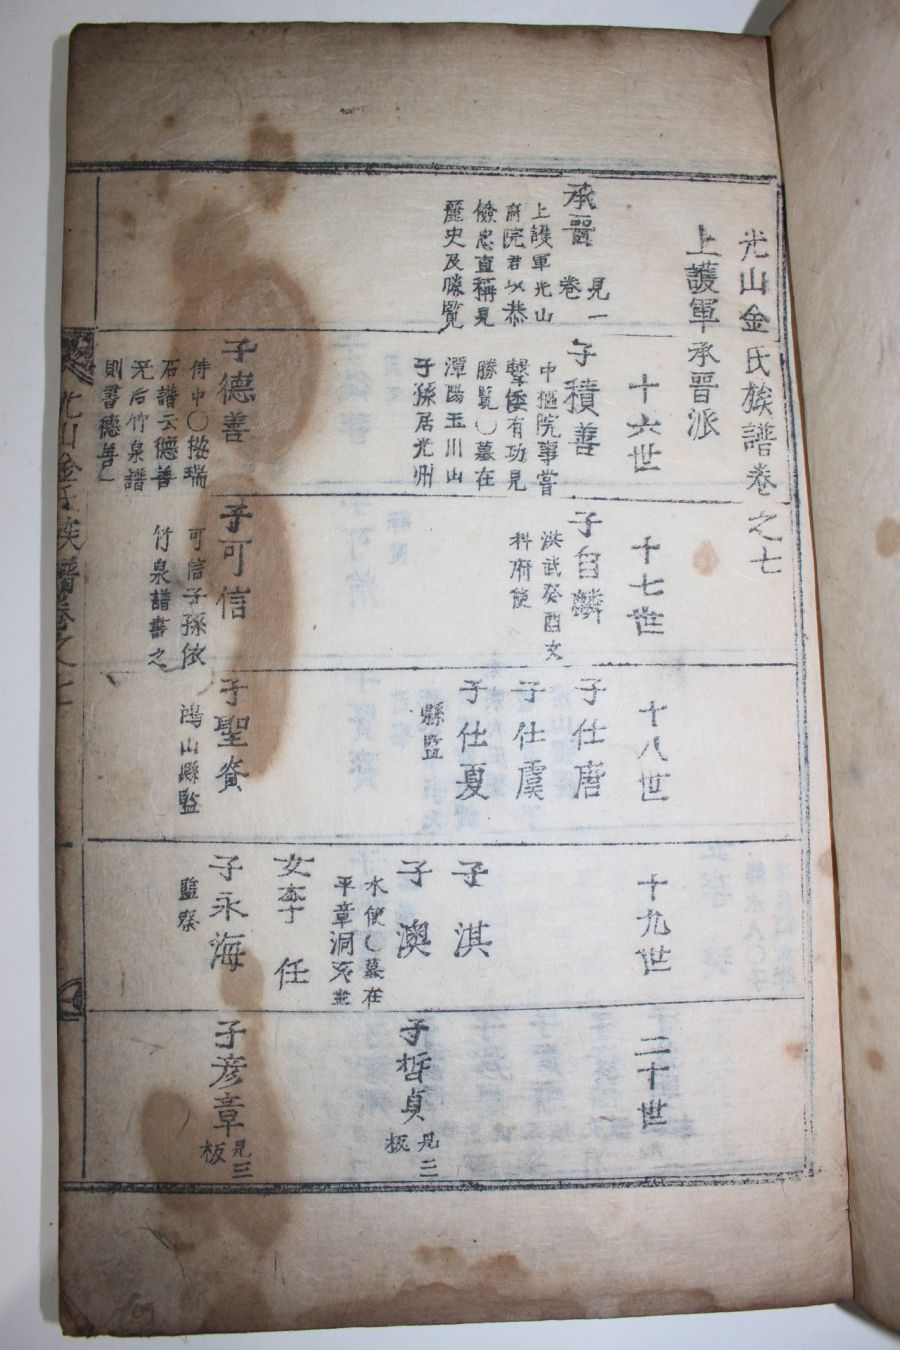 光山金氏族譜卷之七
上護軍承晋派
承晋 見一卷
上護軍光山
府院君以恭
儉忠直稱見
麗史及勝覽
十六世
子積善
中樞院事嘗
擊倭有功見
勝覽○墓在
潭陽玉川山
子孫居光州
子德善
侍中○按瑞
石譜云德善
无后竹泉譜
則書德善
十七世
子自麟
洪武癸酉文
科府使
子可信
可信子孫依
竹泉譜書之
十八世
子仕唐
子仕虞
子仕夏
縣監
子聖資
鴻山縣監
十九世
子淇
子澳
水使○墓在
平章洞亥坐
女李任
子永海
監察
二十世
子哲貞 見二板
子彦章 見三板
光山金氏族譜卷之七
一